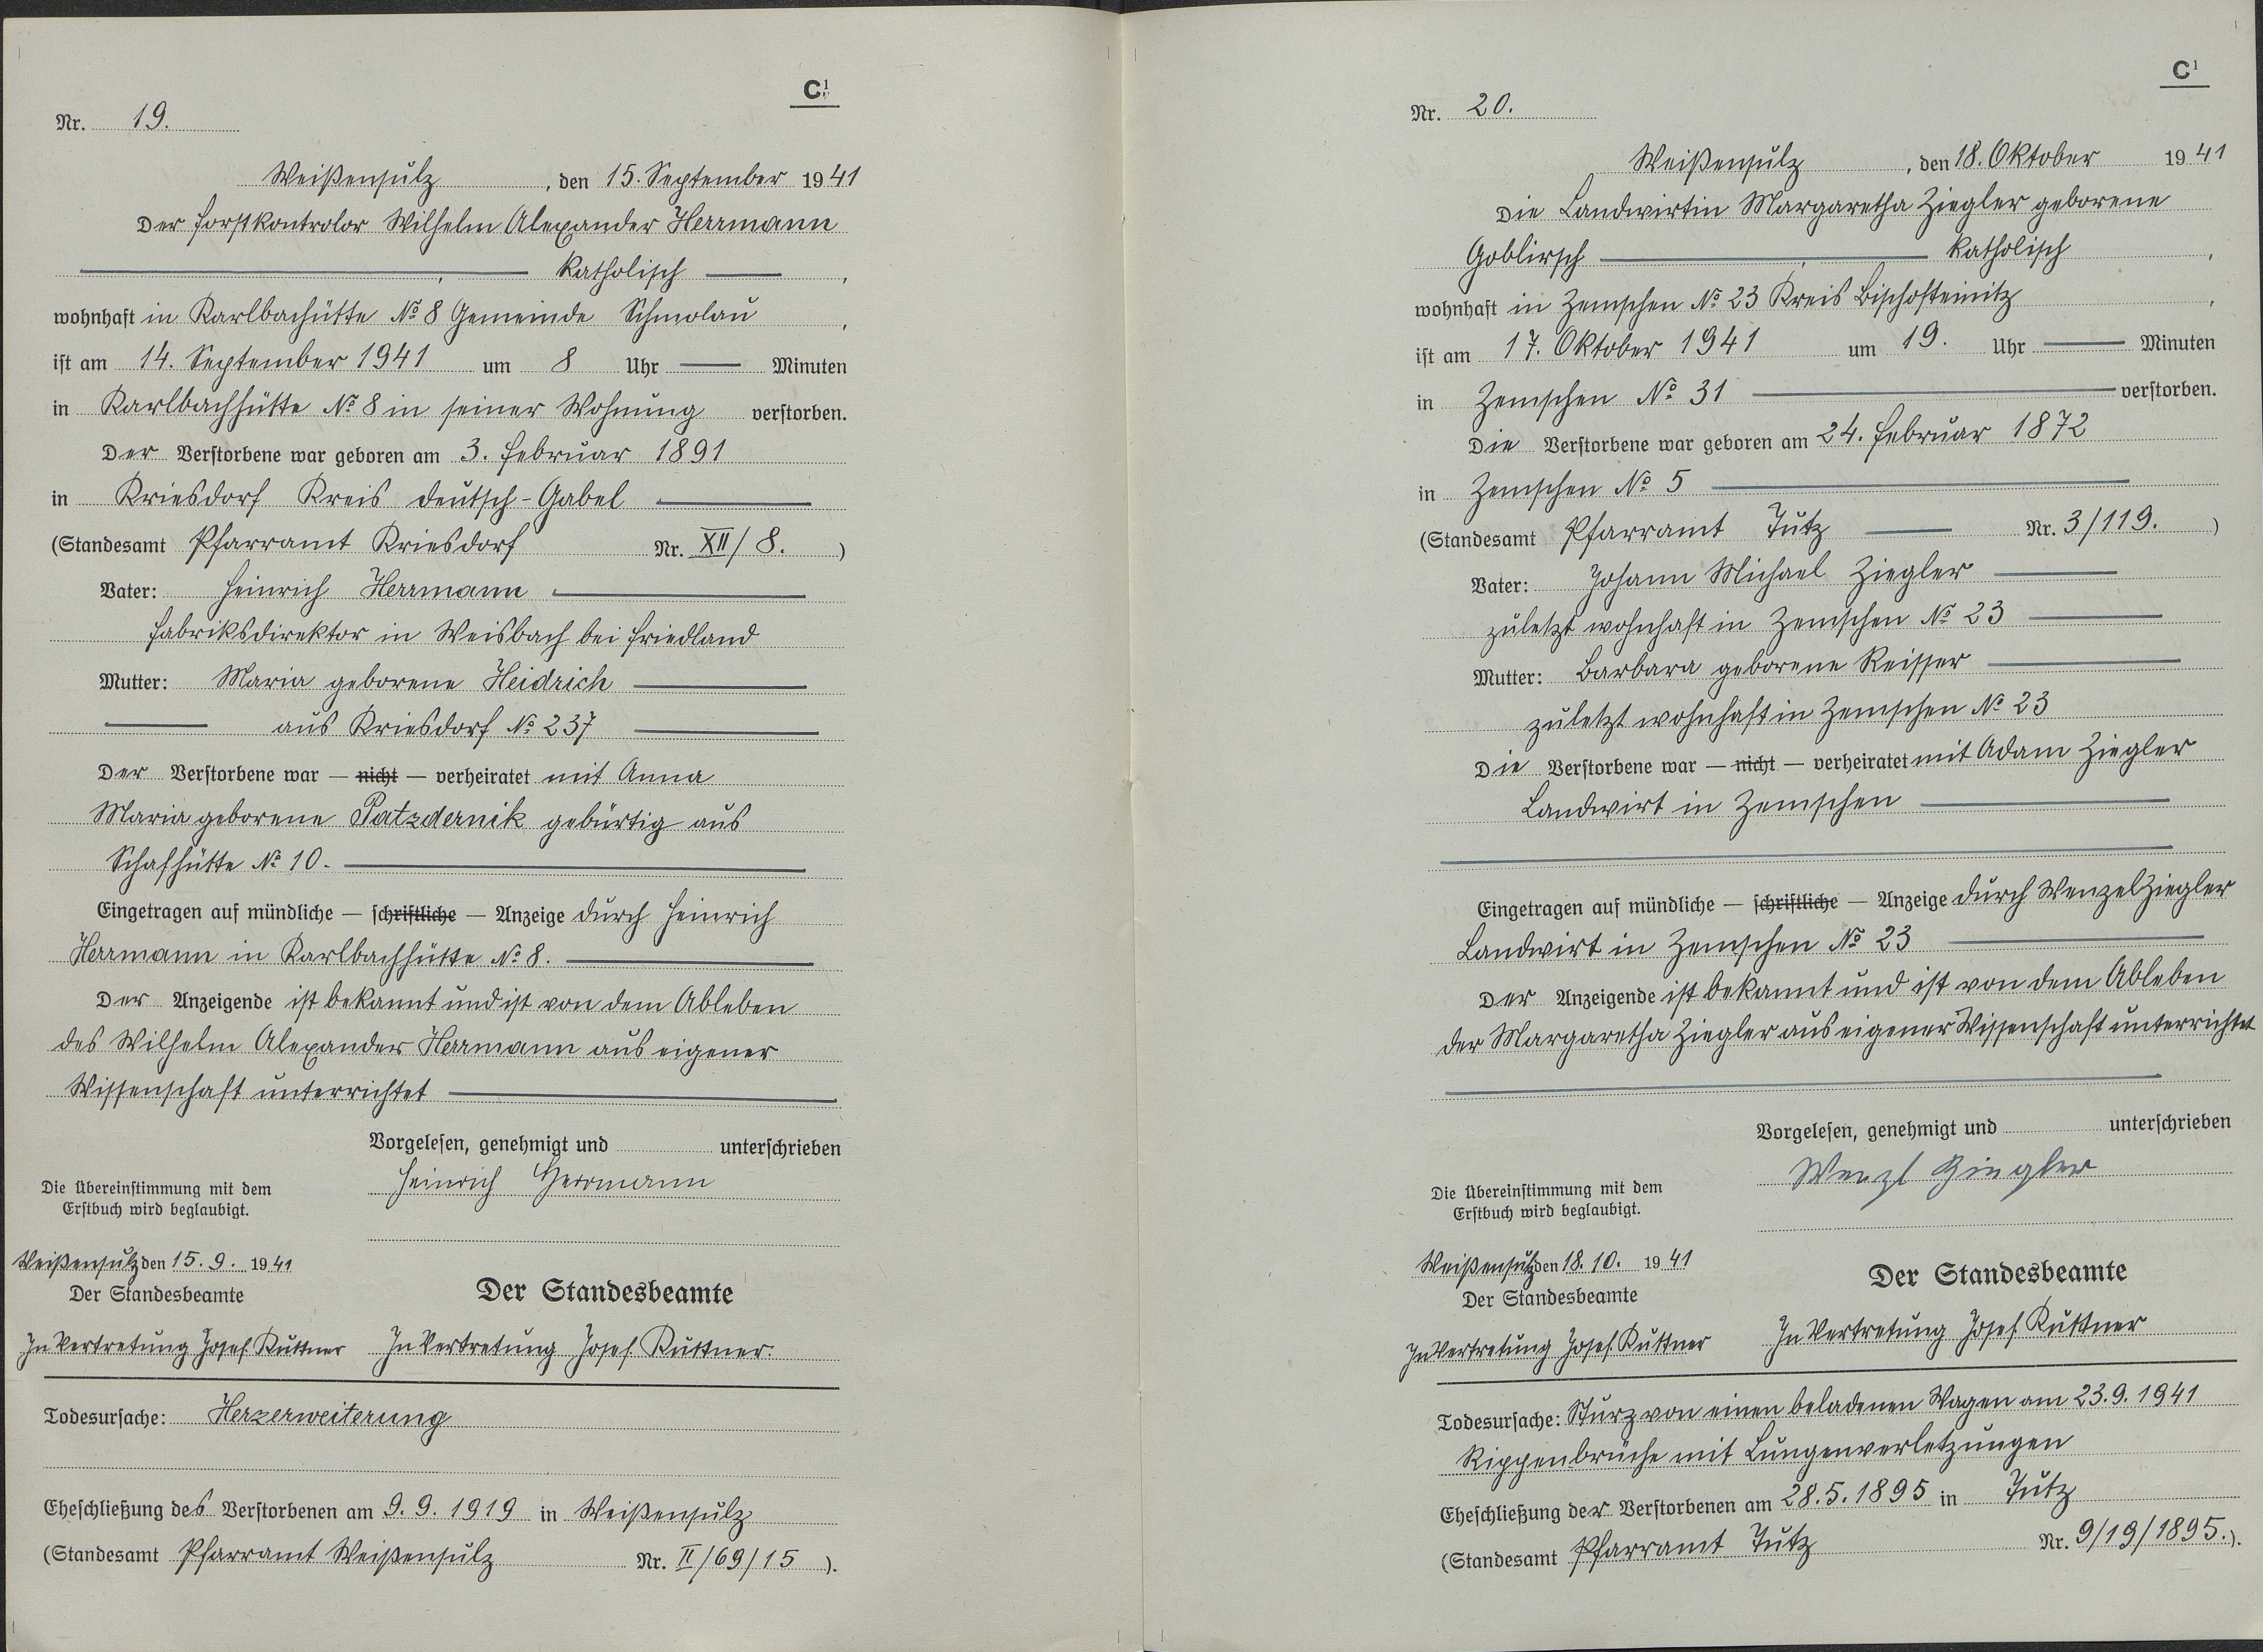 C1
Nr. 19.
Weißensulz, den 15. September 1941
Der Forstkontrolor Wilhelm Alexander Herrmann
, katholisch ,
wohnhaft in Karlbachütte No 8 Gemeinde Schmolau ,
ist am 14. September 1941 um 8 Uhr — Minuten
in Karlbachhütte No 8 in seiner Wohnung verstorben.
Der Verstorbene war geboren am 3. Februar 1891
in Kriesdorf Kreis Deutsch-Gabel
(Standesamt Pfarramt Kriesdorf Nr. XII/8. )
Vater: Heinrich Herrmann
Fabriksdirektor in Weisbach bei Friedland
Mutter: Maria geborene Heidrich
aus Kriesdorf No 237
Der Verstorbene war — nicht — verheiratet mit Anna
Maria geborene Patzdernik gebürtig aus
Schafhütte No 10.
Eingetragen auf mündliche — schriftliche — Anzeige durch Heinrich
Herrmann in Karlbachhütte No 8.
Der Anzeigende ist bekannt und ist von dem Ableben
des Wilhelm Alexander Herrmann aus eigener
Wissenschaft unterrichtet
Vorgelesen, genehmigt und unterschrieben
Heinrich Herrmann
Die Übereinstimmung mit dem
Erstbuch wird beglaubigt.
Weißensulz den 15.9. 1941
Der Standesbeamte
Der Standesbeamte
In Vertretung Josef Kuttner In Vertretung Josef Kuttner.
Todesursache: Herzerweiterung
Eheschließung des Verstorbenen am 9.9.1919 in Weißensulz
(Standesamt Pfarramt Weißensulz Nr. II/69/15 ).
C1
Nr. 20.
Weißensulz, den 18. Oktober 1941
Die Landwirtin Margaretha Ziegler geborene
Goblirsch , katholisch ,
wohnhaft in Zemschen No 23 Kreis Bischofteinitz ,
ist am 17. Oktober 1941 um 19. Uhr — Minuten
in Zemschen No 31 verstorben.
Die Verstorbene war geboren am 24. Februar 1872
in Zemschen No 5
(Standesamt Pfarramt Tutz Nr. 3/119. )
Vater: Johann Michael Ziegler
zuletzt wohnhaft in Zemschen No 23
Mutter: Barbara geborene Reisser
zuletzt wohnhaft in Zemschen No 23
Die Verstorbene war — nicht — verheiratet mit Adam Ziegler
Landwirt in Zemschen
Eingetragen auf mündliche — schriftliche — Anzeige durch Wenzel Ziegler
Landwirt in Zemschen No 23
Der Anzeigende ist bekannt und ist von dem Ableben
der Margaretha Ziegler aus eigener Wissenschaft unterrichtet
Vorgelesen, genehmigt und unterschrieben
Wenzl Ziegler
Die Übereinstimmung mit dem
Erstbuch wird beglaubigt.
Weißensulz den 18.10. 1941
Der Standesbeamte
Der Standesbeamte
In Vertretung Josef Kuttner In Vertretung Josef Kuttner
Todesursache: Sturz von einen beladenen Wagen am 23.9.1941
Rippenbrüche mit Lungenverletzungen
Eheschließung der Verstorbenen am 28.5.1895 in Tutz
(Standesamt Pfarramt Tutz Nr. 9/19/1895.).